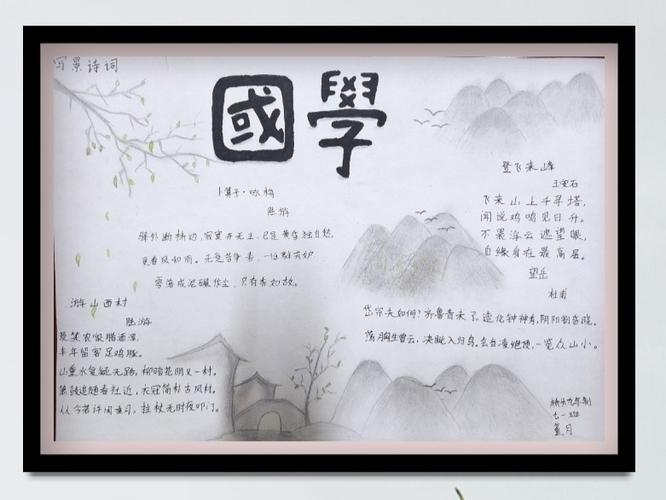 写景诗词
國學
卜算子·咏梅
陆游
驿外断桥边,寂寞开无主。已是黄昏独自愁,
更着风和雨。无意苦争春,一任群芳妒
零落成泥碾作尘,只有香如故。
游山西村
陆游
莫笑农家腊酒浑,
丰年留客足鸡豚。
山重水复疑无路,柳暗花明又一村。
箫鼓追随春社近,衣冠简朴古风村。
从今若许闲乘月,拄杖无时夜叩门。
登飞来峰
王安石
飞来山上千寻塔,
闻说鸡鸣见日升。
不畏浮云遮望眼,
自缘身在最高层。
望岳
杜甫
岱宗夫如何?齐鲁青未了。造化钟神秀,阴阳割昏晓。
荡胸生曾云,决眦入归鸟。会当凌绝顶,一览众山小。
九年制
七一班
月